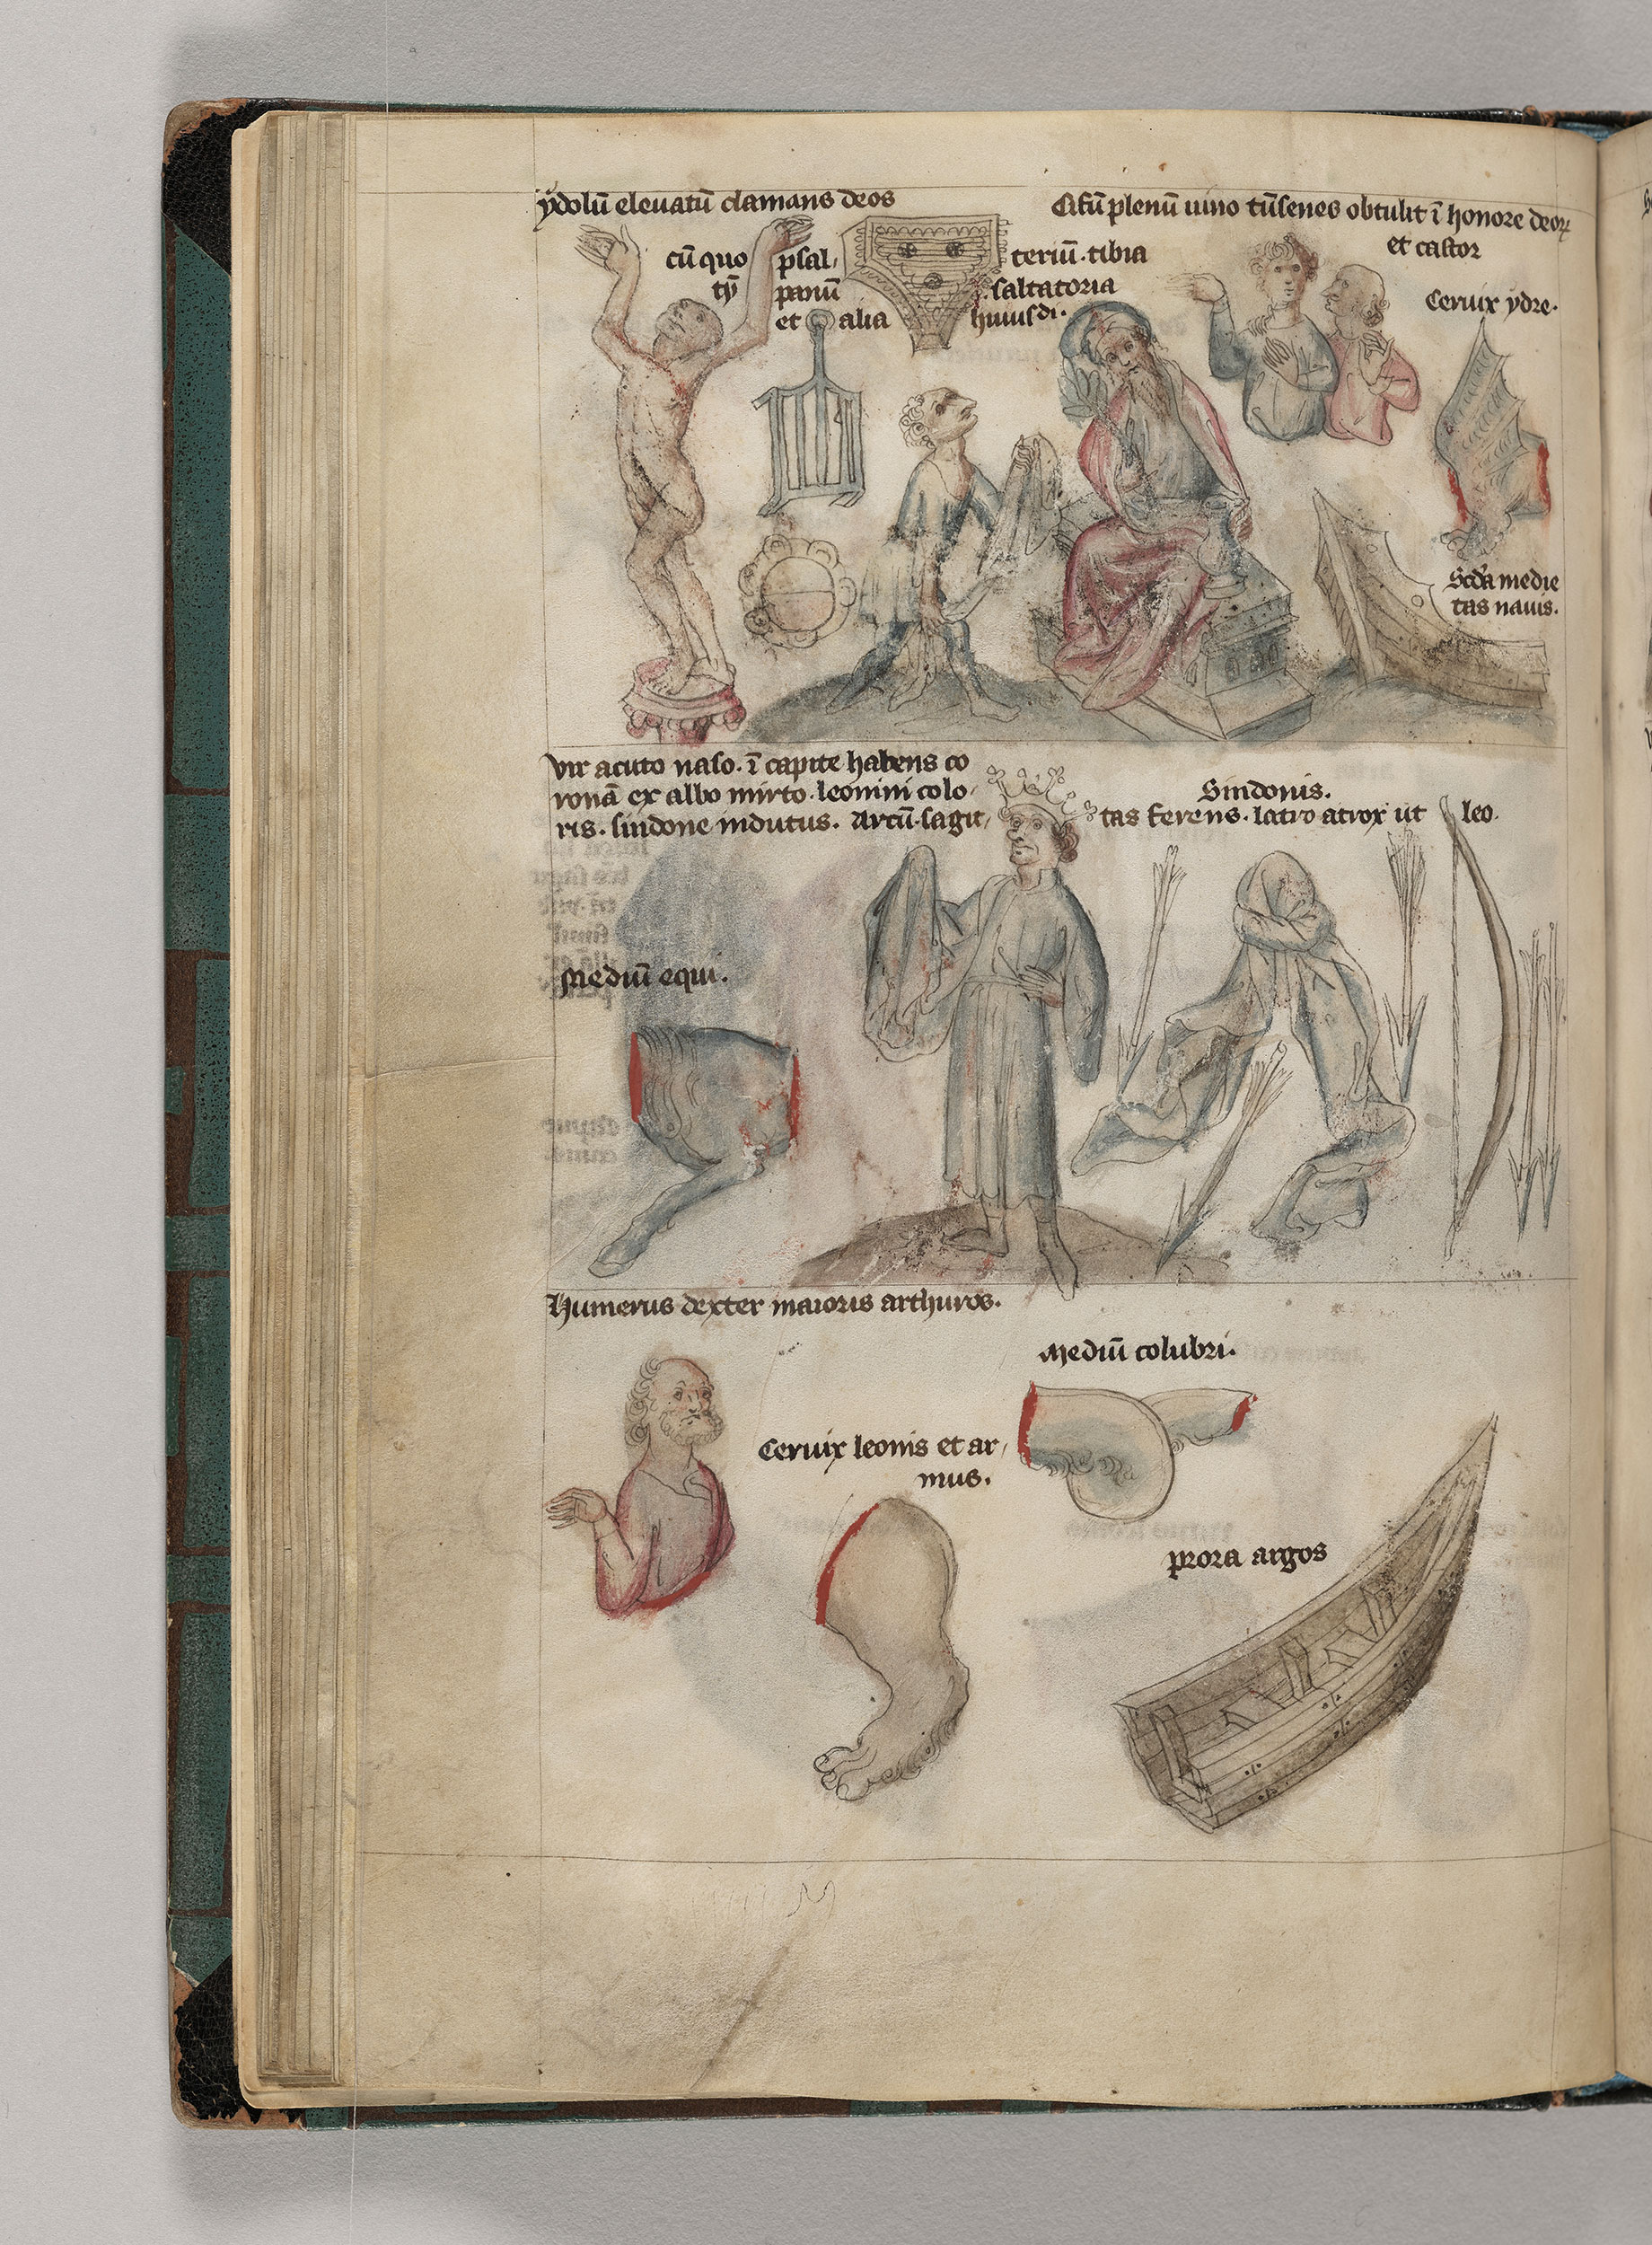 ydolū eleuatū clamans deos
cū quo psal, teriū. tibia
tȳ panū saltatoria
et alia huiusdi.
plenū uino senes obtulit ī honore deoꝝ
et castor
Ceruix ydre.
Scd̄a medie
tas nauis.
Vir acuto naso. ī capite habens co
ronā ex albo mirto. leonini colo,
ris. sindone indutus. Arcū. sagit, tas ferens. latro atrox ut leo.
Sindonis.
Mediū equi.
Humerus dexter maioris arthuros.
Mediū colubri.
Ceruix leonis et ar,
mus.
prora argos